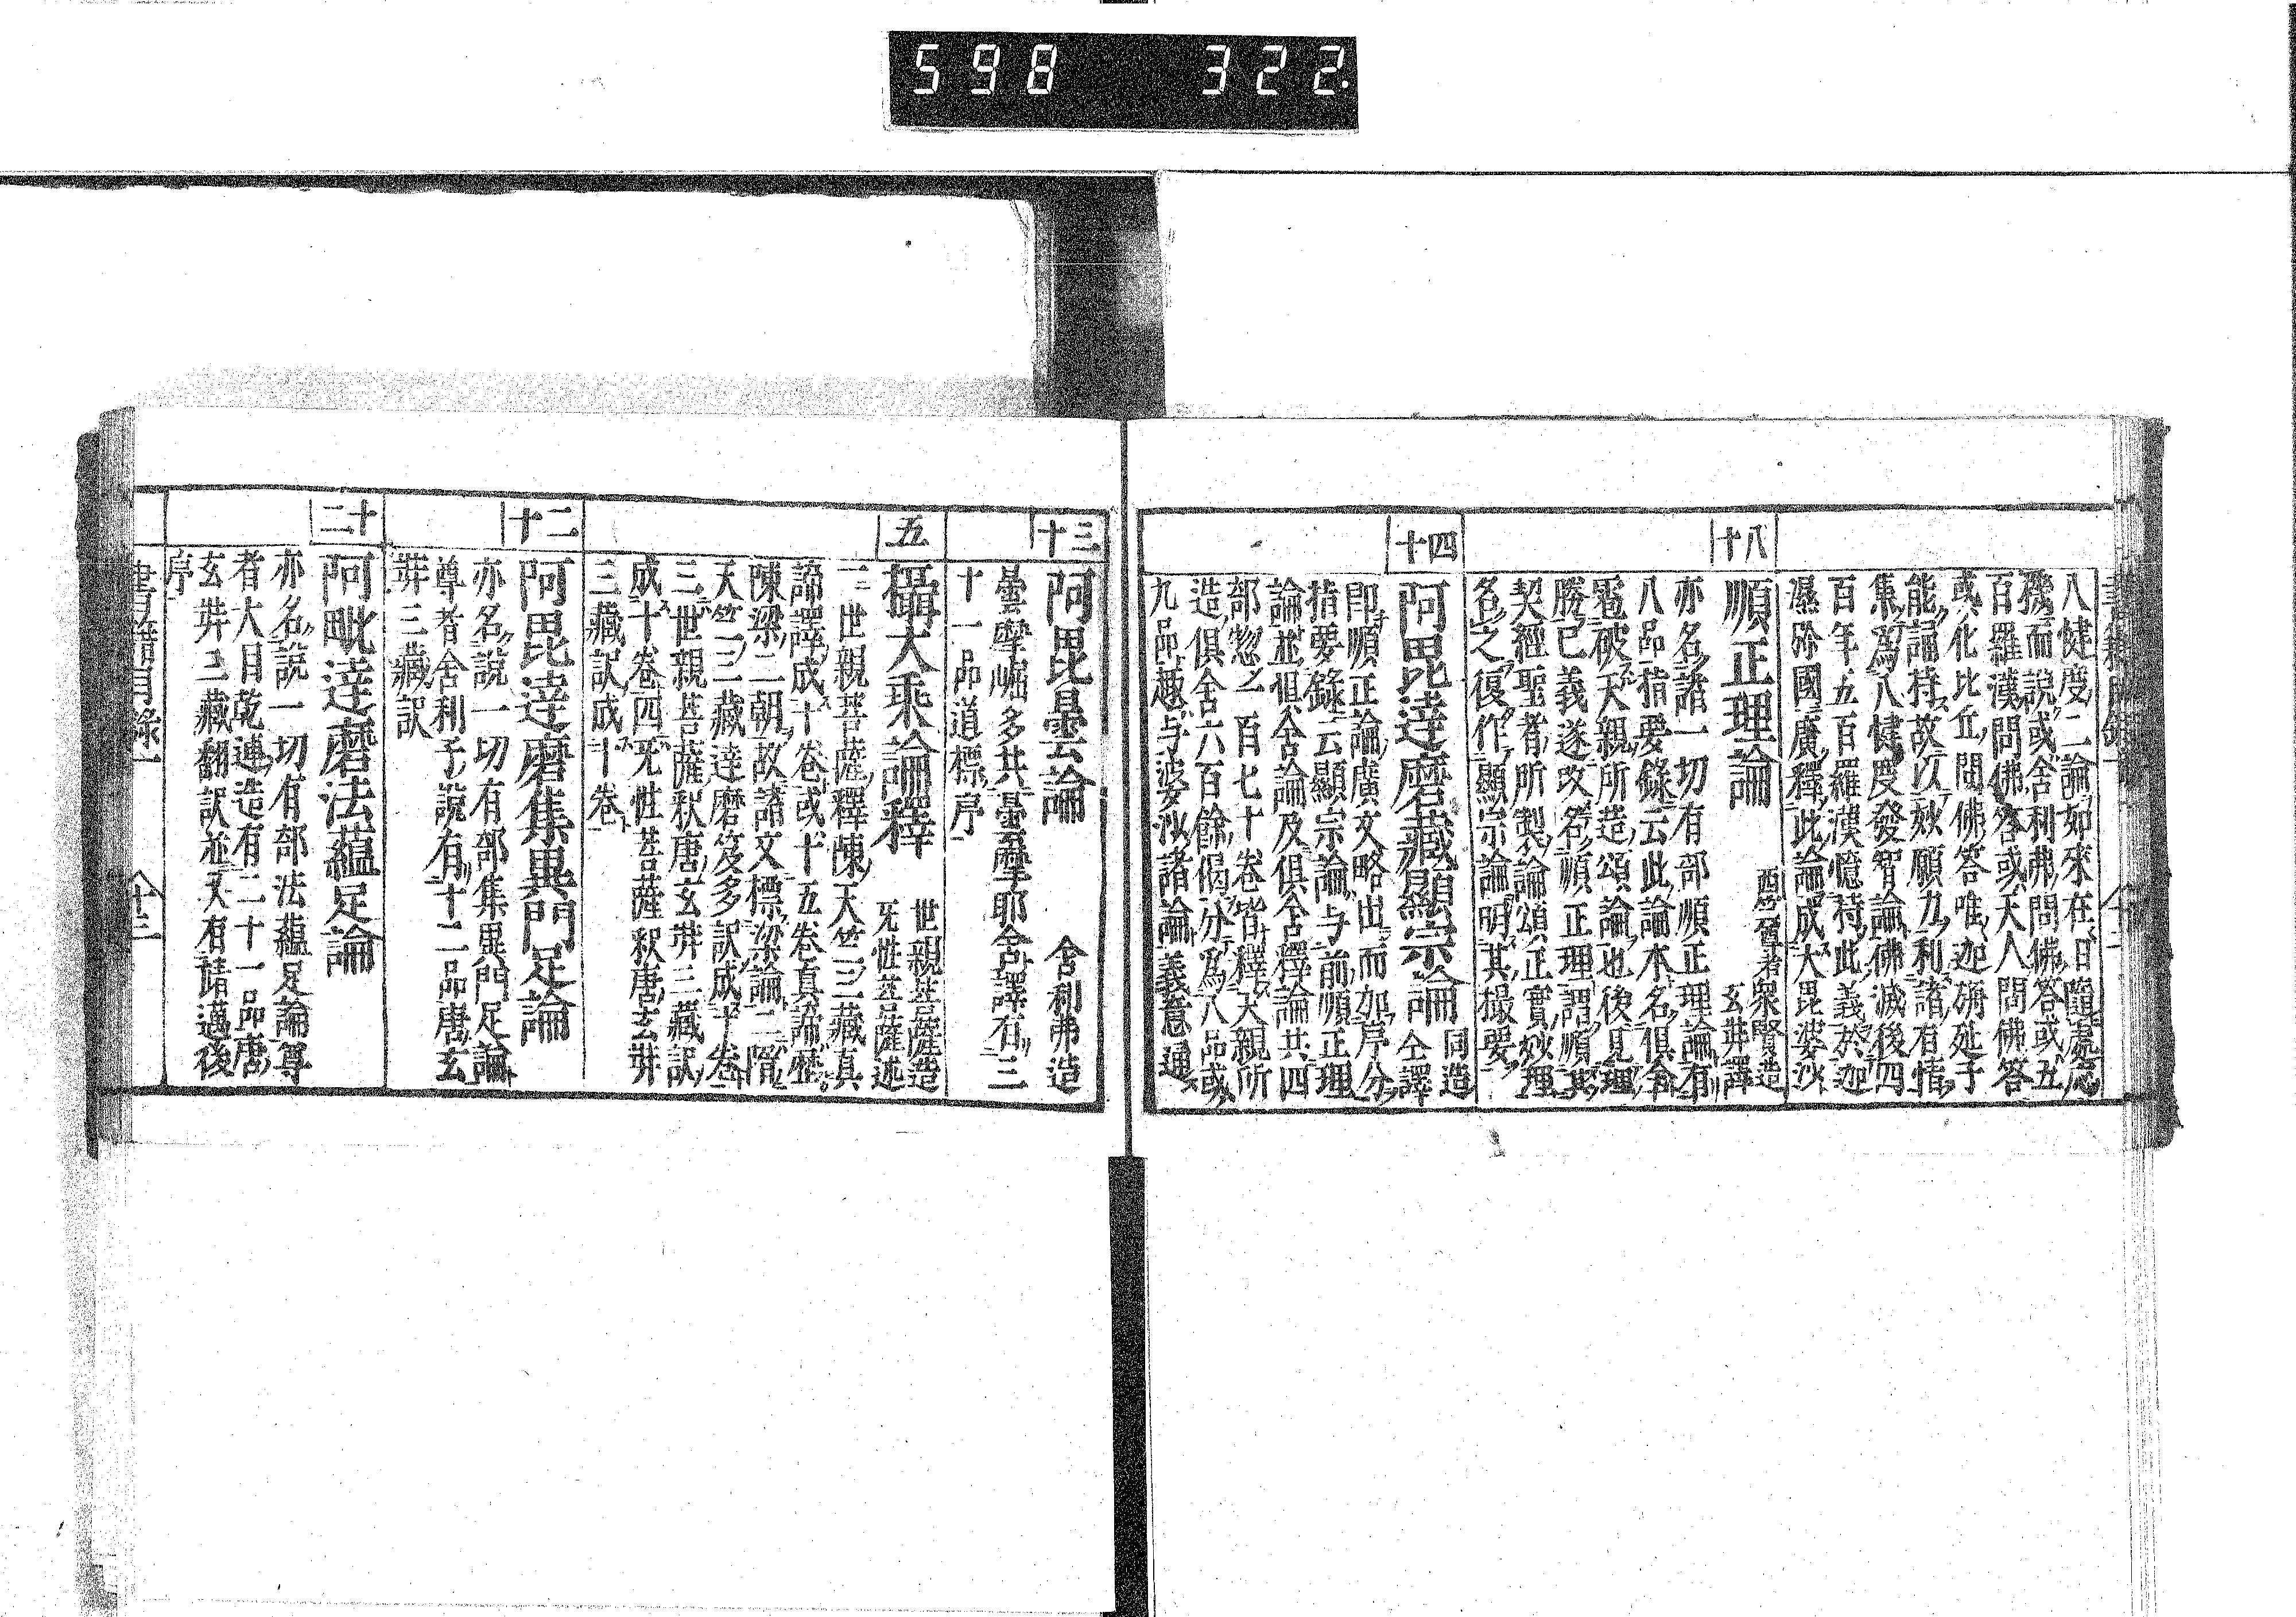 598 322.
八犍度二論如來在日隨處應
機而說或舍利弗問佛答或五
百羅漢問佛答或天人問佛答
或化比丘問佛答唯迦旃延子
能誦持故以妙願力利諸有情
集為八犍度發智論佛滅後四
百年五百羅漢憶持此義於迦
濕弥國廣釋此論成大毘婆沙
十八
順正理論
西竺尊者衆賢造
玄奘譯
亦名諸一切有部順正理論有
八品指要錄云此論本名俱舍
雹破天親所造頌論也後見理
勝已義遂改名順正理謂順其
契經聖者所製論頌正實妙理
名之復作顯宗論明其撮要
十四
阿毘達磨藏顯宗論
同造
仝譯
即順正論廣文略出而加序分
指要錄云顯宗論与前順正理
論並俱舍論及俱舍釋論共四
部惣之一百七十卷皆釋天親所
造俱舍六百餘偈分為八品或
九品趣与婆沙諸論義意通
三十
阿毘曇論
舍利弗造
曇摩崛多共曇摩耶舍譯有三
十一品道標序
五
攝大乘論釋
世親菩薩造
无性菩薩述
一世親菩薩釋陳天竺三藏真
諦譯成十卷或十五卷真諦歷
陳梁二朝故諸文標梁論二隋
天竺三藏達磨笈多訳成十卷
三世親菩薩釈唐玄奘三藏訳
成十卷四无性菩薩釈唐玄奘
三藏訳成十卷
二十
阿毘達磨集異門足論
亦名說一切有部集異門足論
尊者舍利子說有十二品唐玄
奘三藏訳
十二
阿毗達磨法蘊足論
亦名說一切有部法蘊足論尊
者大目乾連造有二十一品唐
玄奘三藏翻訳並又有靖邁後
序
書籍目錄一
十三